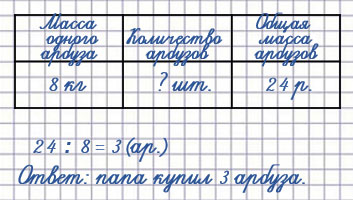 Масса одного арбуза
Количество арбузов
Общая масса арбузов
8 кг
? шт.
24 р.
24 : 8 = 3 (ар.)
Ответ: папа купил 3 арбуза.